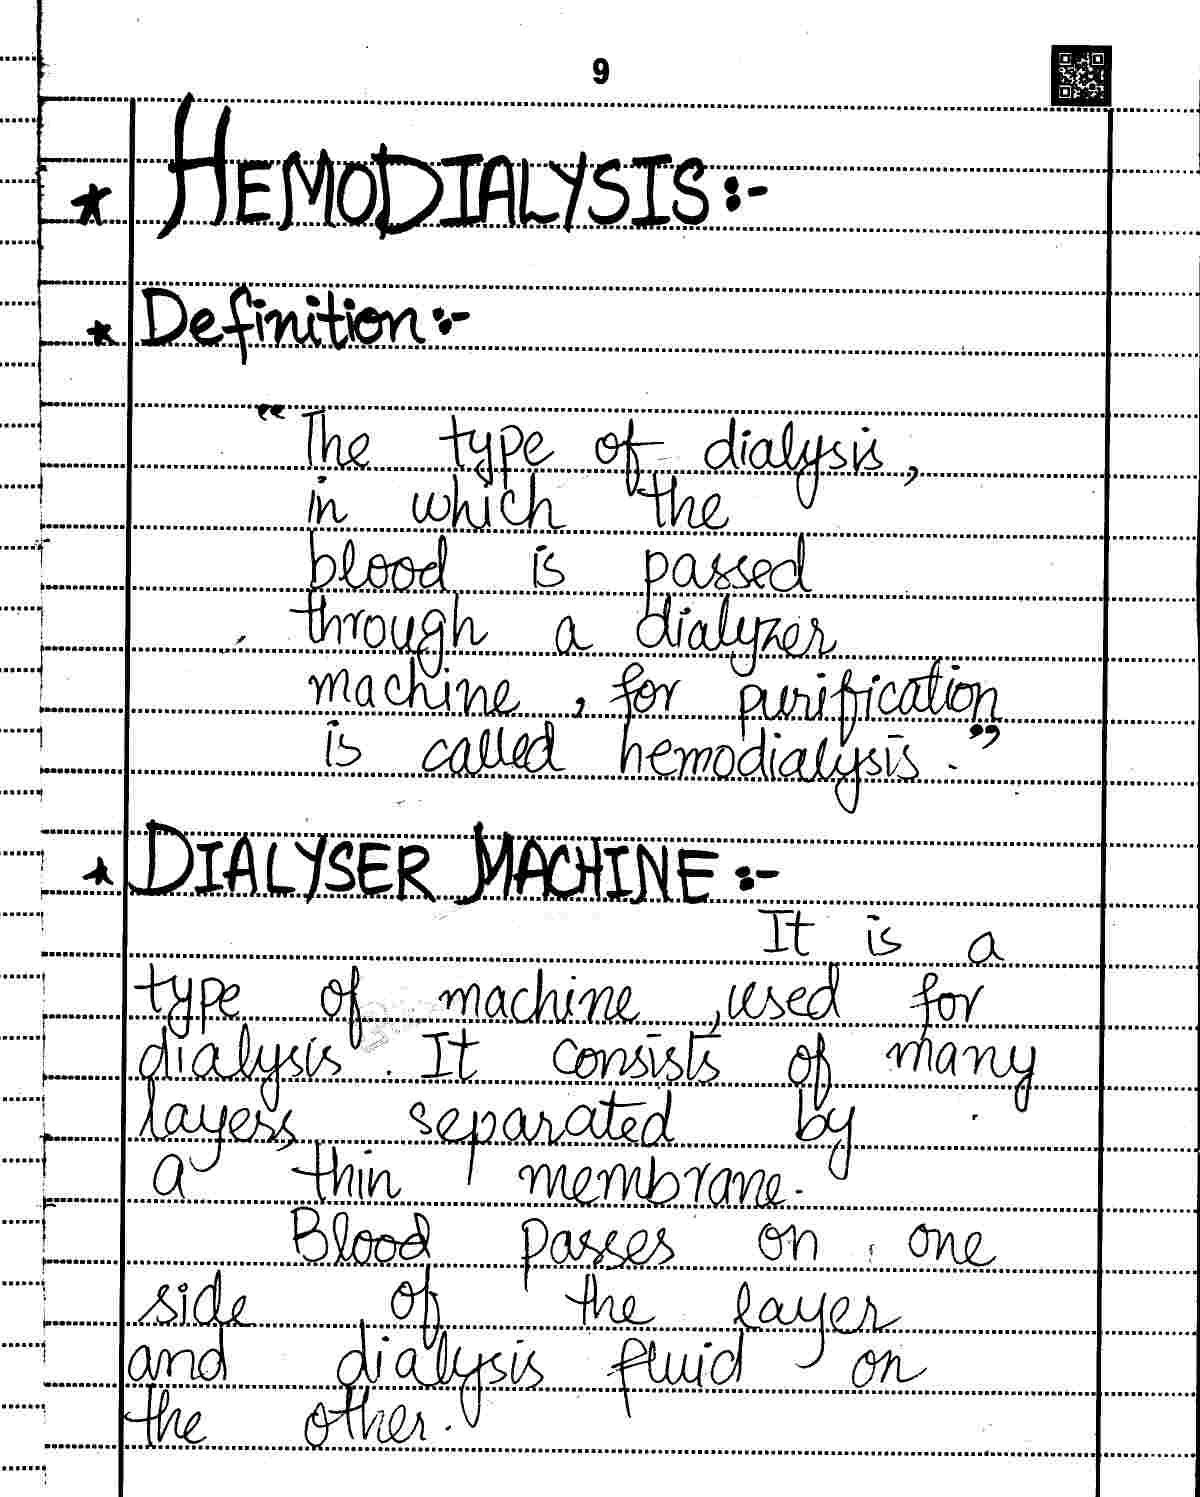 9
* HEMODIALYSIS:-
* Definition:-
"The type of dialysis,
in which the
blood is passed
through a dialyzer
machine, for purification
is called hemodialysis."
* DIALYSER MACHINE:-
It is a
type of machine, used for
dialysis. It consists of many
layers separated by
a thin membrane.
Blood passes on one
side of the layer
and dialysis fluid on
the other.